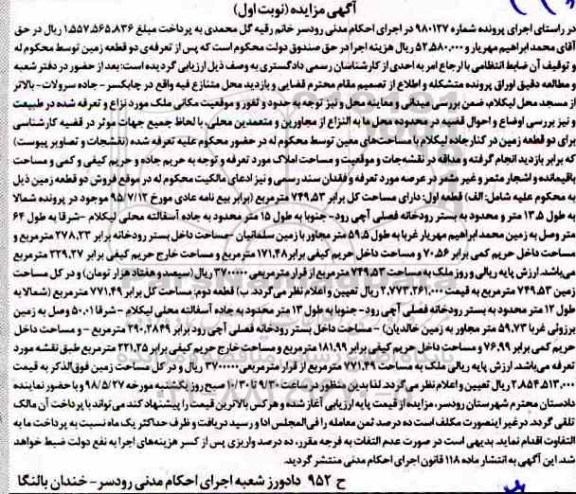 آگهی مزایده (نوبت اول)
در راستای اجرای پرونده شماره ۹۸۰۱۳۷ در اجرای احکام مدنی رودسر خانم رقیه گل محمدی به پرداخت مبلغ ۱,۵۵۷,۵۶۵,۸۳۶ ریال در حق
آقای محمد ابراهیم مهریار و ۵۲,۵۸۰,۰۰۰ ریال هزینه اجرا در حق صندوق دولت محکوم است که پس از تعرفه‌ی دو قطعه زمین توسط محکوم له
و توقیف آن ضابط انتظامی با ارجاع امر به احدی از کارشناسان رسمی دادگستری به وصف ذیل ارزیابی گردیده است: بعد از حضور در دفتر شعبه
و مطالعه دقیق اوراق پرونده متشکله و اطلاع از تصمیم مقام محترم قضایی و بازدید محل متنازع فیه واقع در چابکسر - جاده سرولات - بالاتر
از مسجد محل لیکلام، ضمن بررسی میدانی و معاینه محل و نیز توجه به حدود و ثغور و موقعیت مکانی ملک مورد نزاع و تعرفه شده در طبیعت
و نیز بررسی اوضاع و احوال قضیه در محدوده محل ها به النزاع از مجاورین و متعمدین محلی، با لحاظ جمیع جهات موثر در قضیه کارشناسی
برای دو قطعه زمین در کنار جاده لیکلام با مساحت‌های معین توسط محکوم له در حضور محکوم علیه تعرفه شده (نقشجات و تصاویر پیوست)
که برابر بازدید انجام گرفته و مداقه در نقشه‌جات و موقعیت و مساحت املاک مورد تعرفه و توجه به حریم جاده و حریم کیفی و کمی و مساحت
باقیمانده و اشجار مثمر و غیر مثمر در عرصه مورد تعرفه و فقدان سند رسمی و نیز ادعای مالکیت محکوم له در موقع فروش دو قطعه زمین ذیل
به محکوم علیه شامل: الف) قطعه اول: دارای مساحت کل برابر ۷۴۹,۵۳ مترمربع (برابر بیع نامه عادی مورخ ۹۵/۷/۱۲ موجود در پرونده شمالا
به طول ۱۳,۵ متر و محدود به بستر رودخانه فصلی آچی رود- جنوبا به طول ۱۵ متر محدود به جاده آسفالته محلی لیکلام -شرقا به طول ۶۴
متر وصل به زمین محمد ابراهیم مهریار غربا به طول ۵۹,۵ متر مجاور با زمین سلمانیان -مساحت داخل بستر رودخانه برابر ۲۷۸,۲۳ مترمربع و
مساحت داخل حریم کمی برابر ۷۰,۵۶ و مساحت داخل حریم کیفی برابر ۱۷۱,۴۸ مترمربع و مساحت خارج حریم کیفی برابر ۲۲۹,۲۷ مترمربع
می‌باشد. ارزش پایه ریالی و روز ملک به مساحت ۷۴۹,۵۳ مترمربع از قرار مترمربعی ۳۷۰۰۰۰۰ ریال (سیصد و هفتاد هزار تومان) و در کل مساحت
زمین ۷۴۹,۵۳ مترمربع به قیمت ۲,۷۷۳,۲۶۱,۰۰۰ ریال تعیین و اعلام نظر می‌گردد. ب) قطعه دوم: مساحت کل برابر ۷۷۱,۴۹ مترمربع (شمالا به
طول ۱۲ متر محدود به بستر رودخانه فصلی آچی رود- جنوبا به طول ۱۳ متر محدود به جاده آسفالته محلی لیکلام - شرقا ۵۰,۰۱ وصل به زمین
برزونی غربا ۵۹,۷۳ متر مجاور به زمین خالدیان) - مساحت داخل بستر رودخانه فصلی آچی رود برابر ۲۹۰,۲۸۴۹ مترمربع - و مساحت داخل
حریم کمی برابر ۷۶,۹۹ و مساحت داخل حریم کیفی برابر ۱۸۱,۹۹ مترمربع و مساحت خارج حریم کیفی برابر ۲۲۱,۲۵ مترمربع طبق نقشه مورد
تعرفه می‌باشد. ارزش پایه ریالی ملک به مساحت ۷۷۱,۴۹ مترمربع از قرار مترمربعی ۳۷۰۰۰۰۰ ریال و در کل مساحت زمین فوق‌الذکر به قیمت
۲,۸۵۴,۵۱۳,۰۰۰ ریال تعیین و اعلام نظر می‌گردد. لذا بدین منظور در ساعت ۹/۳۰ تا ۱۰/۳۰ صبح روز یکشنبه مورخه ۹۸/۵/۲۷ و با حضور نماینده
دادستان محترم شهرستان رودسر، مزایده از قیمت پایه ارزیابی آغاز شده و هر کس بالاترین قیمت را پیشنهاد کند می‌تواند با پرداخت آن مالک
تلقی گردد. در غیر اینصورت مکلف است ده درصد ثمن معامله را فی‌المجلس ادا و رسید دریافت و ظرف حداکثر یک ماه نسبت به پرداخت ما به
التفاوت اقدام نماید. بدیهی است در صورت عدم التفات به فرجه مقرر، ده درصد واریزی پس از کسر هزینه‌های اجرا به نفع دولت ضبط خواهد
شد. این آگهی به انتشار ماده ۱۱۸ قانون اجرای احکام مدنی منتشر گردید.
ح ۹۵۲ دادورز شعبه اجرای احکام مدنی رودسر- خندان بالنگا